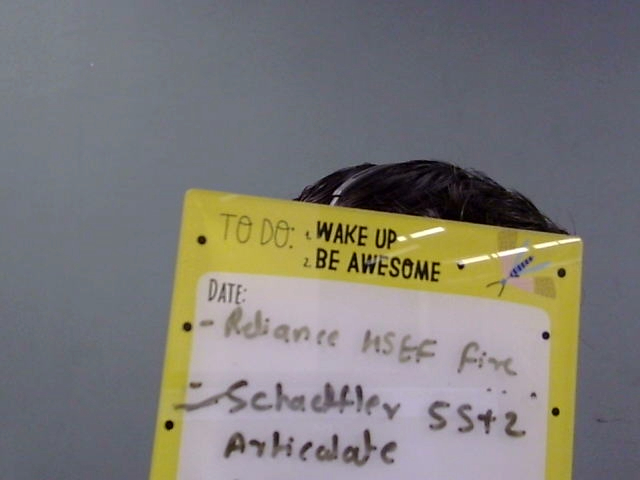 TO DO: 1. WAKE UP
2. BE AWESOME
DATE:
- Reliance HSEF Fire
- Schaeffler 5S+2
Articulate